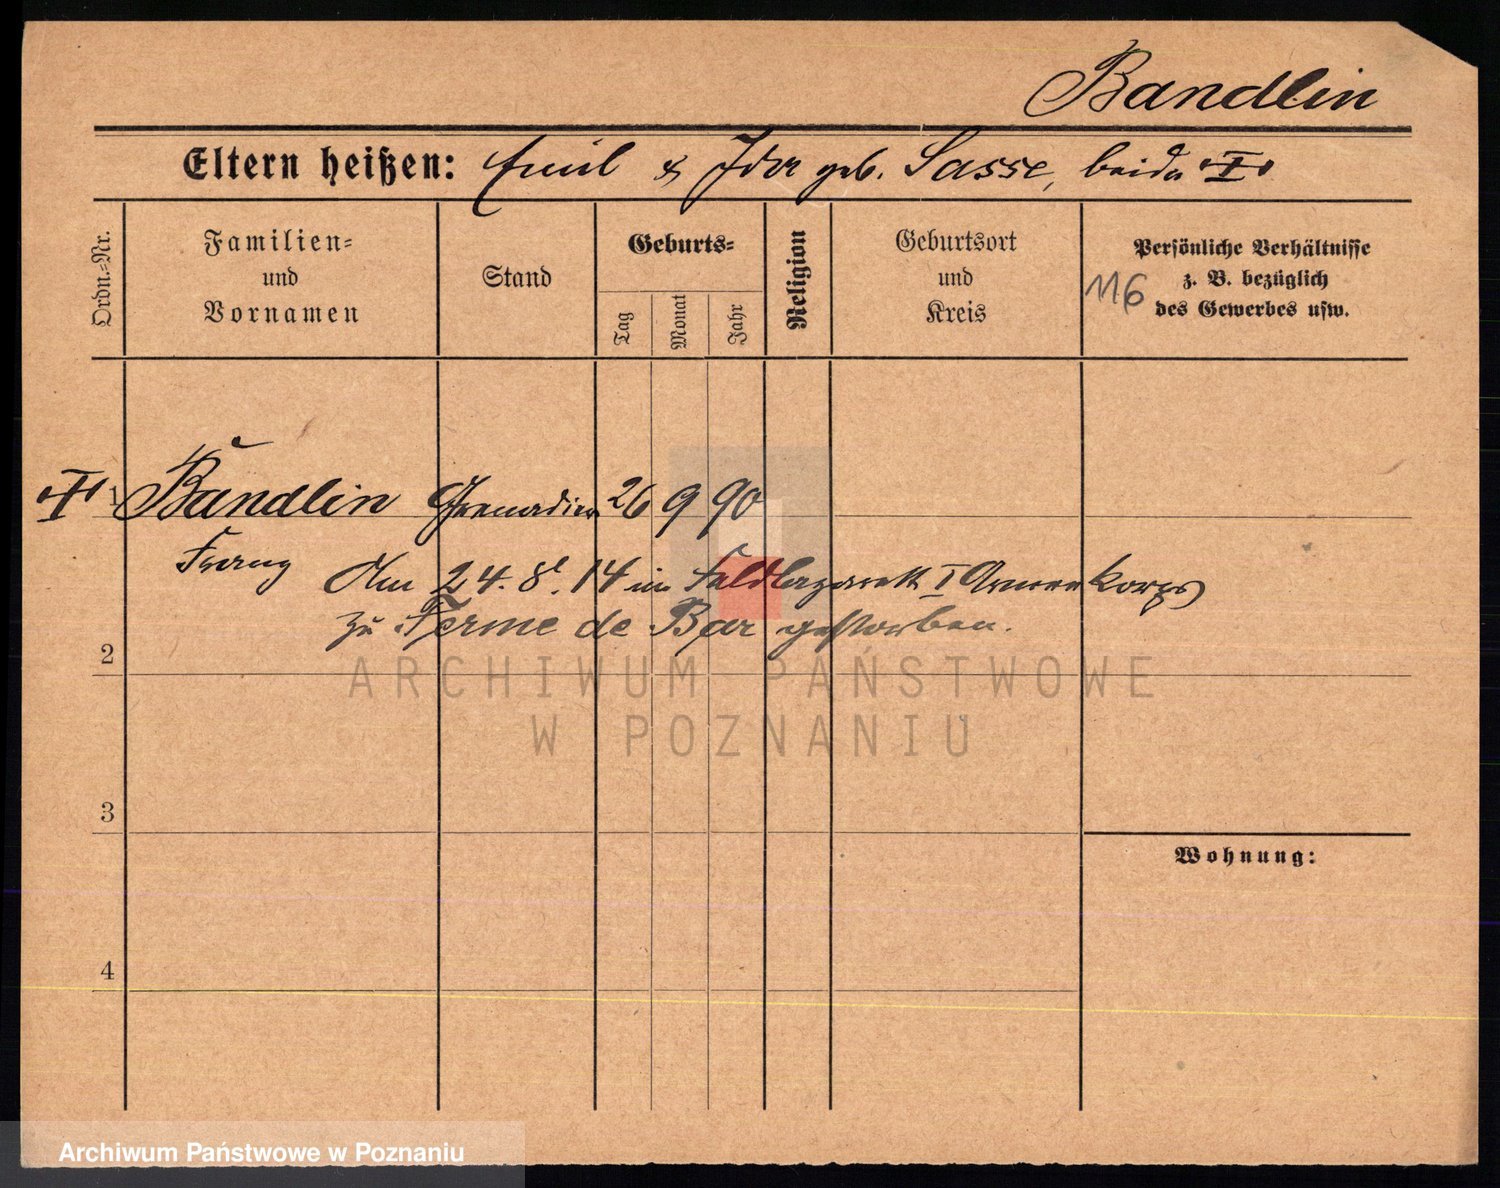 Bandlin
Eltern heißen: Emil & Ida geb. Sasse, beide
Ordn.=Nr.
Familien=
und
Vornamen
Stand
Geburts=
Tag
Monat
Jahr
Religion
Geburtsort
und
Kreis
116
Persönliche Verhältnisse
z. B. bezüglich
des Gewerbes usw.
1 Bandlin Grenadier 26 9 90
Franz Am 24. 8. 14 im Feldlazarett I Armeekorps
zu Ferme de Bar gestorben.
2
ARCHIWUM PAŃSTWOWE
W POZNANIU
3
Wohnung:
4
Archiwum Państwowe w Poznaniu